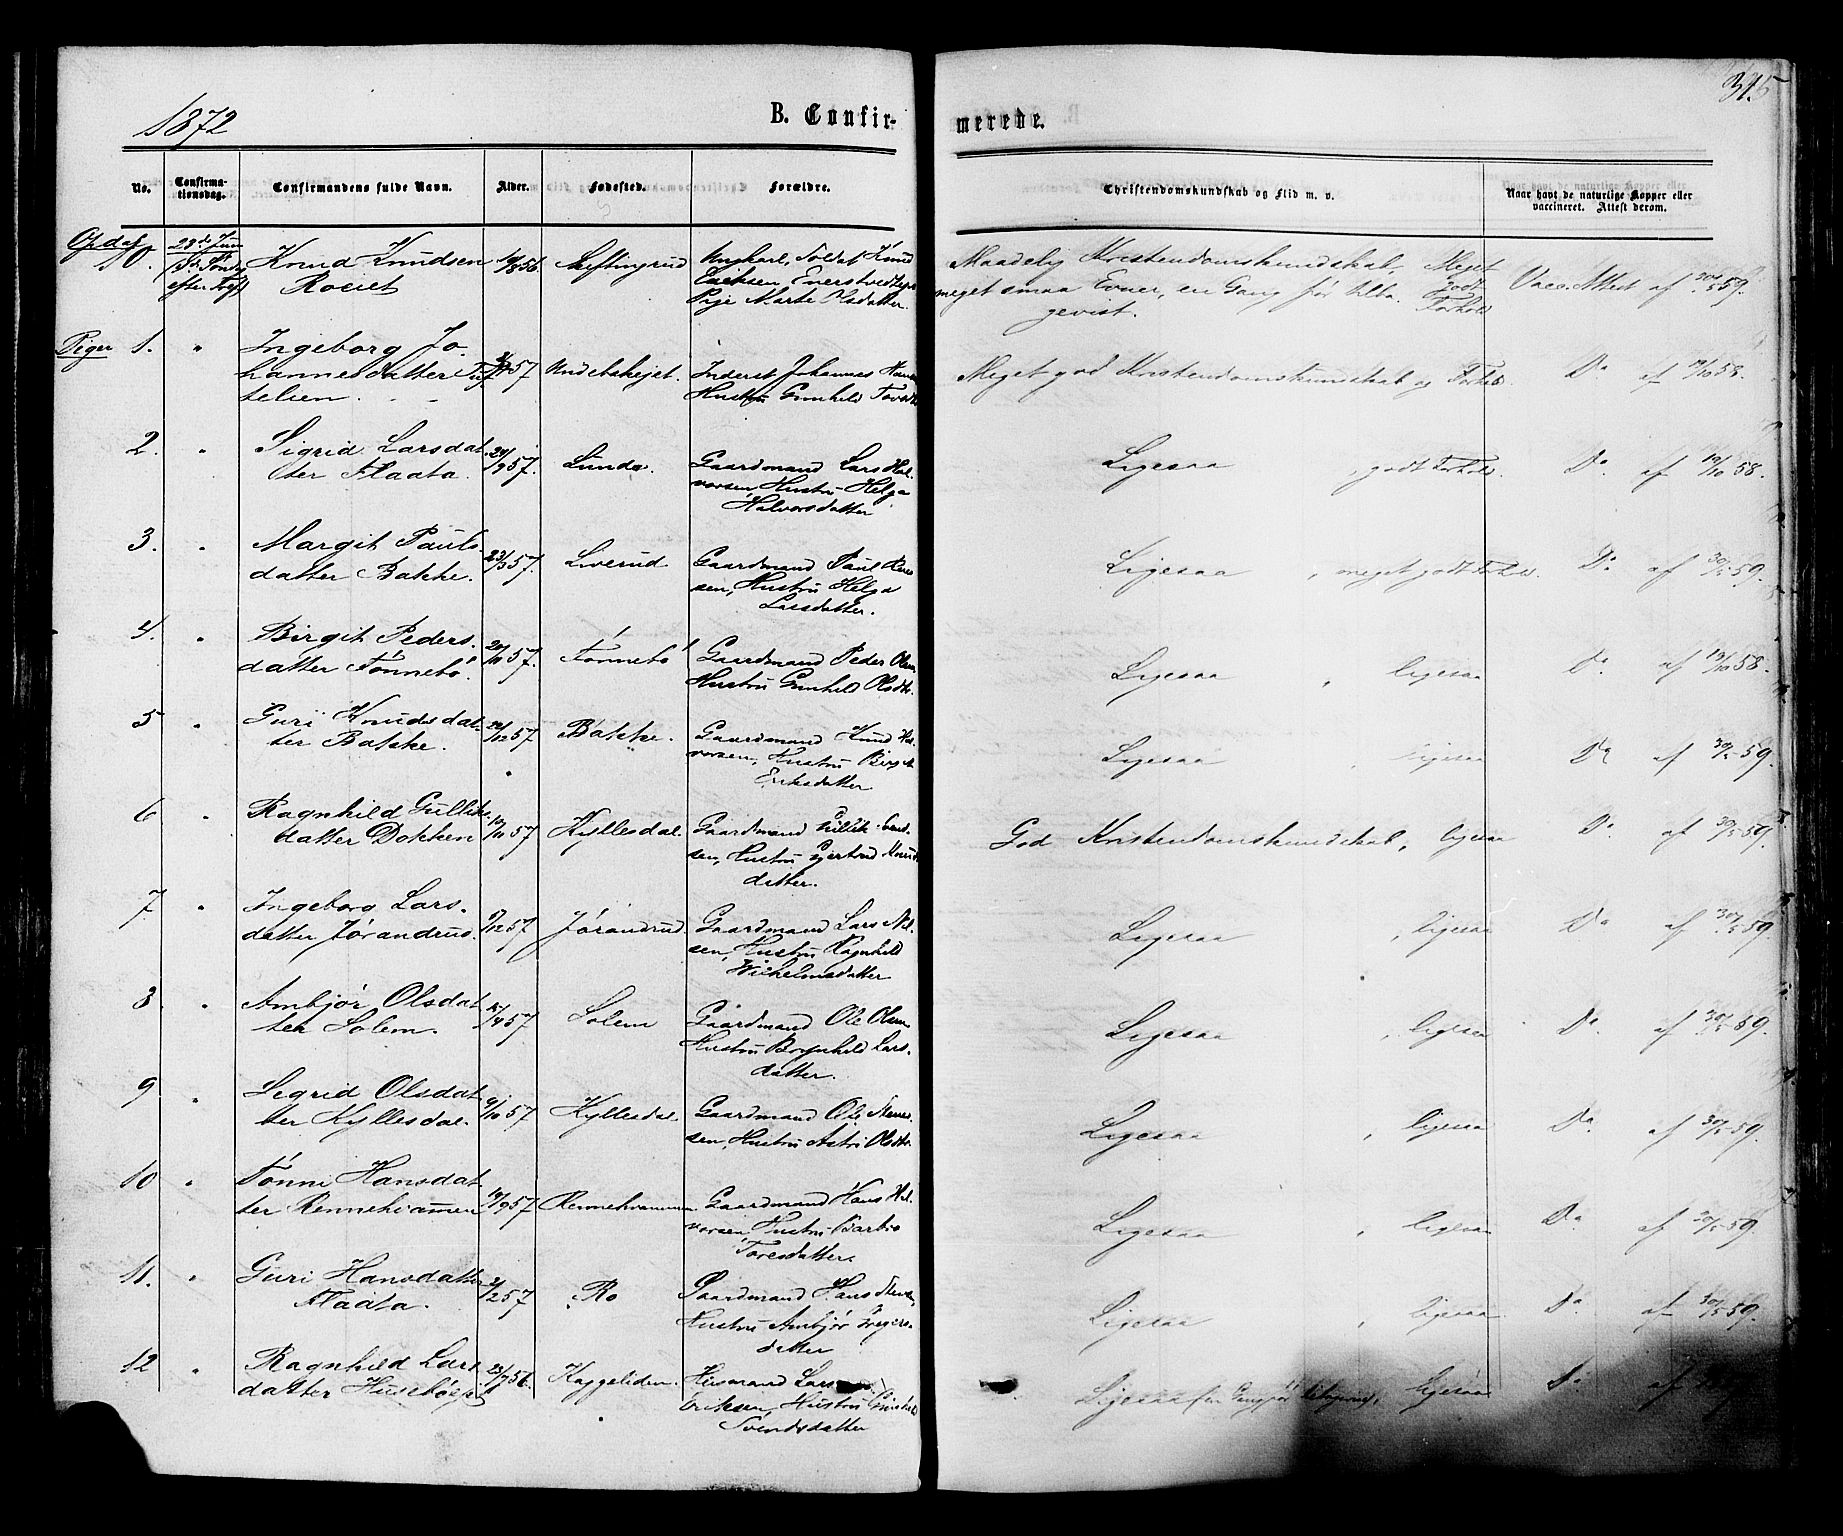 315
1872
B. Confir-
merede.
No.
Confirma-
tionsdag.
Confirmandens fulde Navn.
Alder.
Fødested.
Forældre.
Christendomskundskab og Flid m. v.
Naar havt de naturlige Kopper eller
vaccineret. Attest derom.
Opdal
10.
28de Juni
efter
Knud Knudsen
Roeiet
/8 56.
Ungkarl, Soldat Knud
Pige Marte
Maadelig Kristendomskundskab,
meget smaa Evner, en Gang før tilba-
gevist.
Meget
godt
Forhold
Vacc. Attest af 30/5 59.
Piger
1.
"
Ingeborg Jo-
hannesdatter Tuf-
telien.
57
Inderst Johannes
Hustru Gunhild
Meget god Kristendomskundskab og Forhold.
Do af 19/10 58.
2.
"
Sigrid Larsdat-
ter Flaata.
29/9 57.
Lunde.
Gaardmand Lars Hal-
vorsen, Hustru Helga
Halvorsdatter
Ligesaa, godt Forhold.
Do af 19/10 58.
3.
"
Margit Pauls-
datter Bakke.
23/3 57.
Liverud.
Gaardmand Paul
sen, Hustru Helga
Larsdatter.
Ligesaa, meget godt Forhold.
Do af 30/5 59.
4.
"
Birgit Peders-
datter Tønnebö.
20/11 57.
Tønnebö
Gaardmand Peder Olsen
Hustru Gunhild Olsdtr.
Ligesaa, ligesaa
Do af 19/10 58.
5
"
Guri Knudsdat-
ter Bakke.
/12 57
Bakke.
Gaardmand Knud Hal-
vorsen, Hustru Birgit
Eriksdatter
Ligesaa, ligesaa
Do af 30/5 59.
6
"
Ragnhild Gulliks-
datter Dokken
10/11 57
Kyllesdal.
Gaardmand Gullik
sen, Hustru Gjertrud Knuds-
datter.
God Kristendomskundskab, ligesaa
Do af 30/5 59.
7
"
Ingeborg Lars-
datter Jørandrud.
/12 57
Jørandrud.
Gaardmand Lars Nil-
sen, Hustru Ragnhild
Wilhelmsdatter
Ligesaa, ligesaa
Do af 30/5 59.
8
"
Ambjør Olsdat-
ter Solem.
15/4 57
Solem
Gaardmand Ole Olsen
Hustru Bognhild Lars-
datter.
Ligesaa, ligesaa
Do af 30/5 59.
9
"
Segrid Olsdat-
ter Kyllesdal.
9/10 57
Kyllesdal.
Gaardmand Ole
sen, Hustru Astri Olsdtr.
Ligesaa, ligesaa
Do af 30/5 59.
10
"
Tønni Hansdat-
ter Rennehvammen
/9 57
Rennehvammen
Gaardmand Hans Hal-
vorsen, Hustru Barbro
Toresdatter.
Ligesaa, ligesaa
Do af 30/5 59.
11.
"
Guri Hansdatter
Flaata.
2/2 57
Ro
Gaardmand Hans
Hustru Ambjør
datter
Ligesaa, ligesaa
Do af 30/5 59.
12
"
Ragnhild Lars-
datter
23/7 56.
Kaggeliden.
Husmand Lars
Eriksen, Hustru Gunhild
Svendsdatter
Ligesaa (en Gang før tilbagevist), ligesaa
Do af